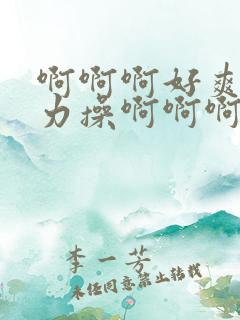 啊啊啊好爽
力操啊啊啊
李一芳
未经同意禁止转载